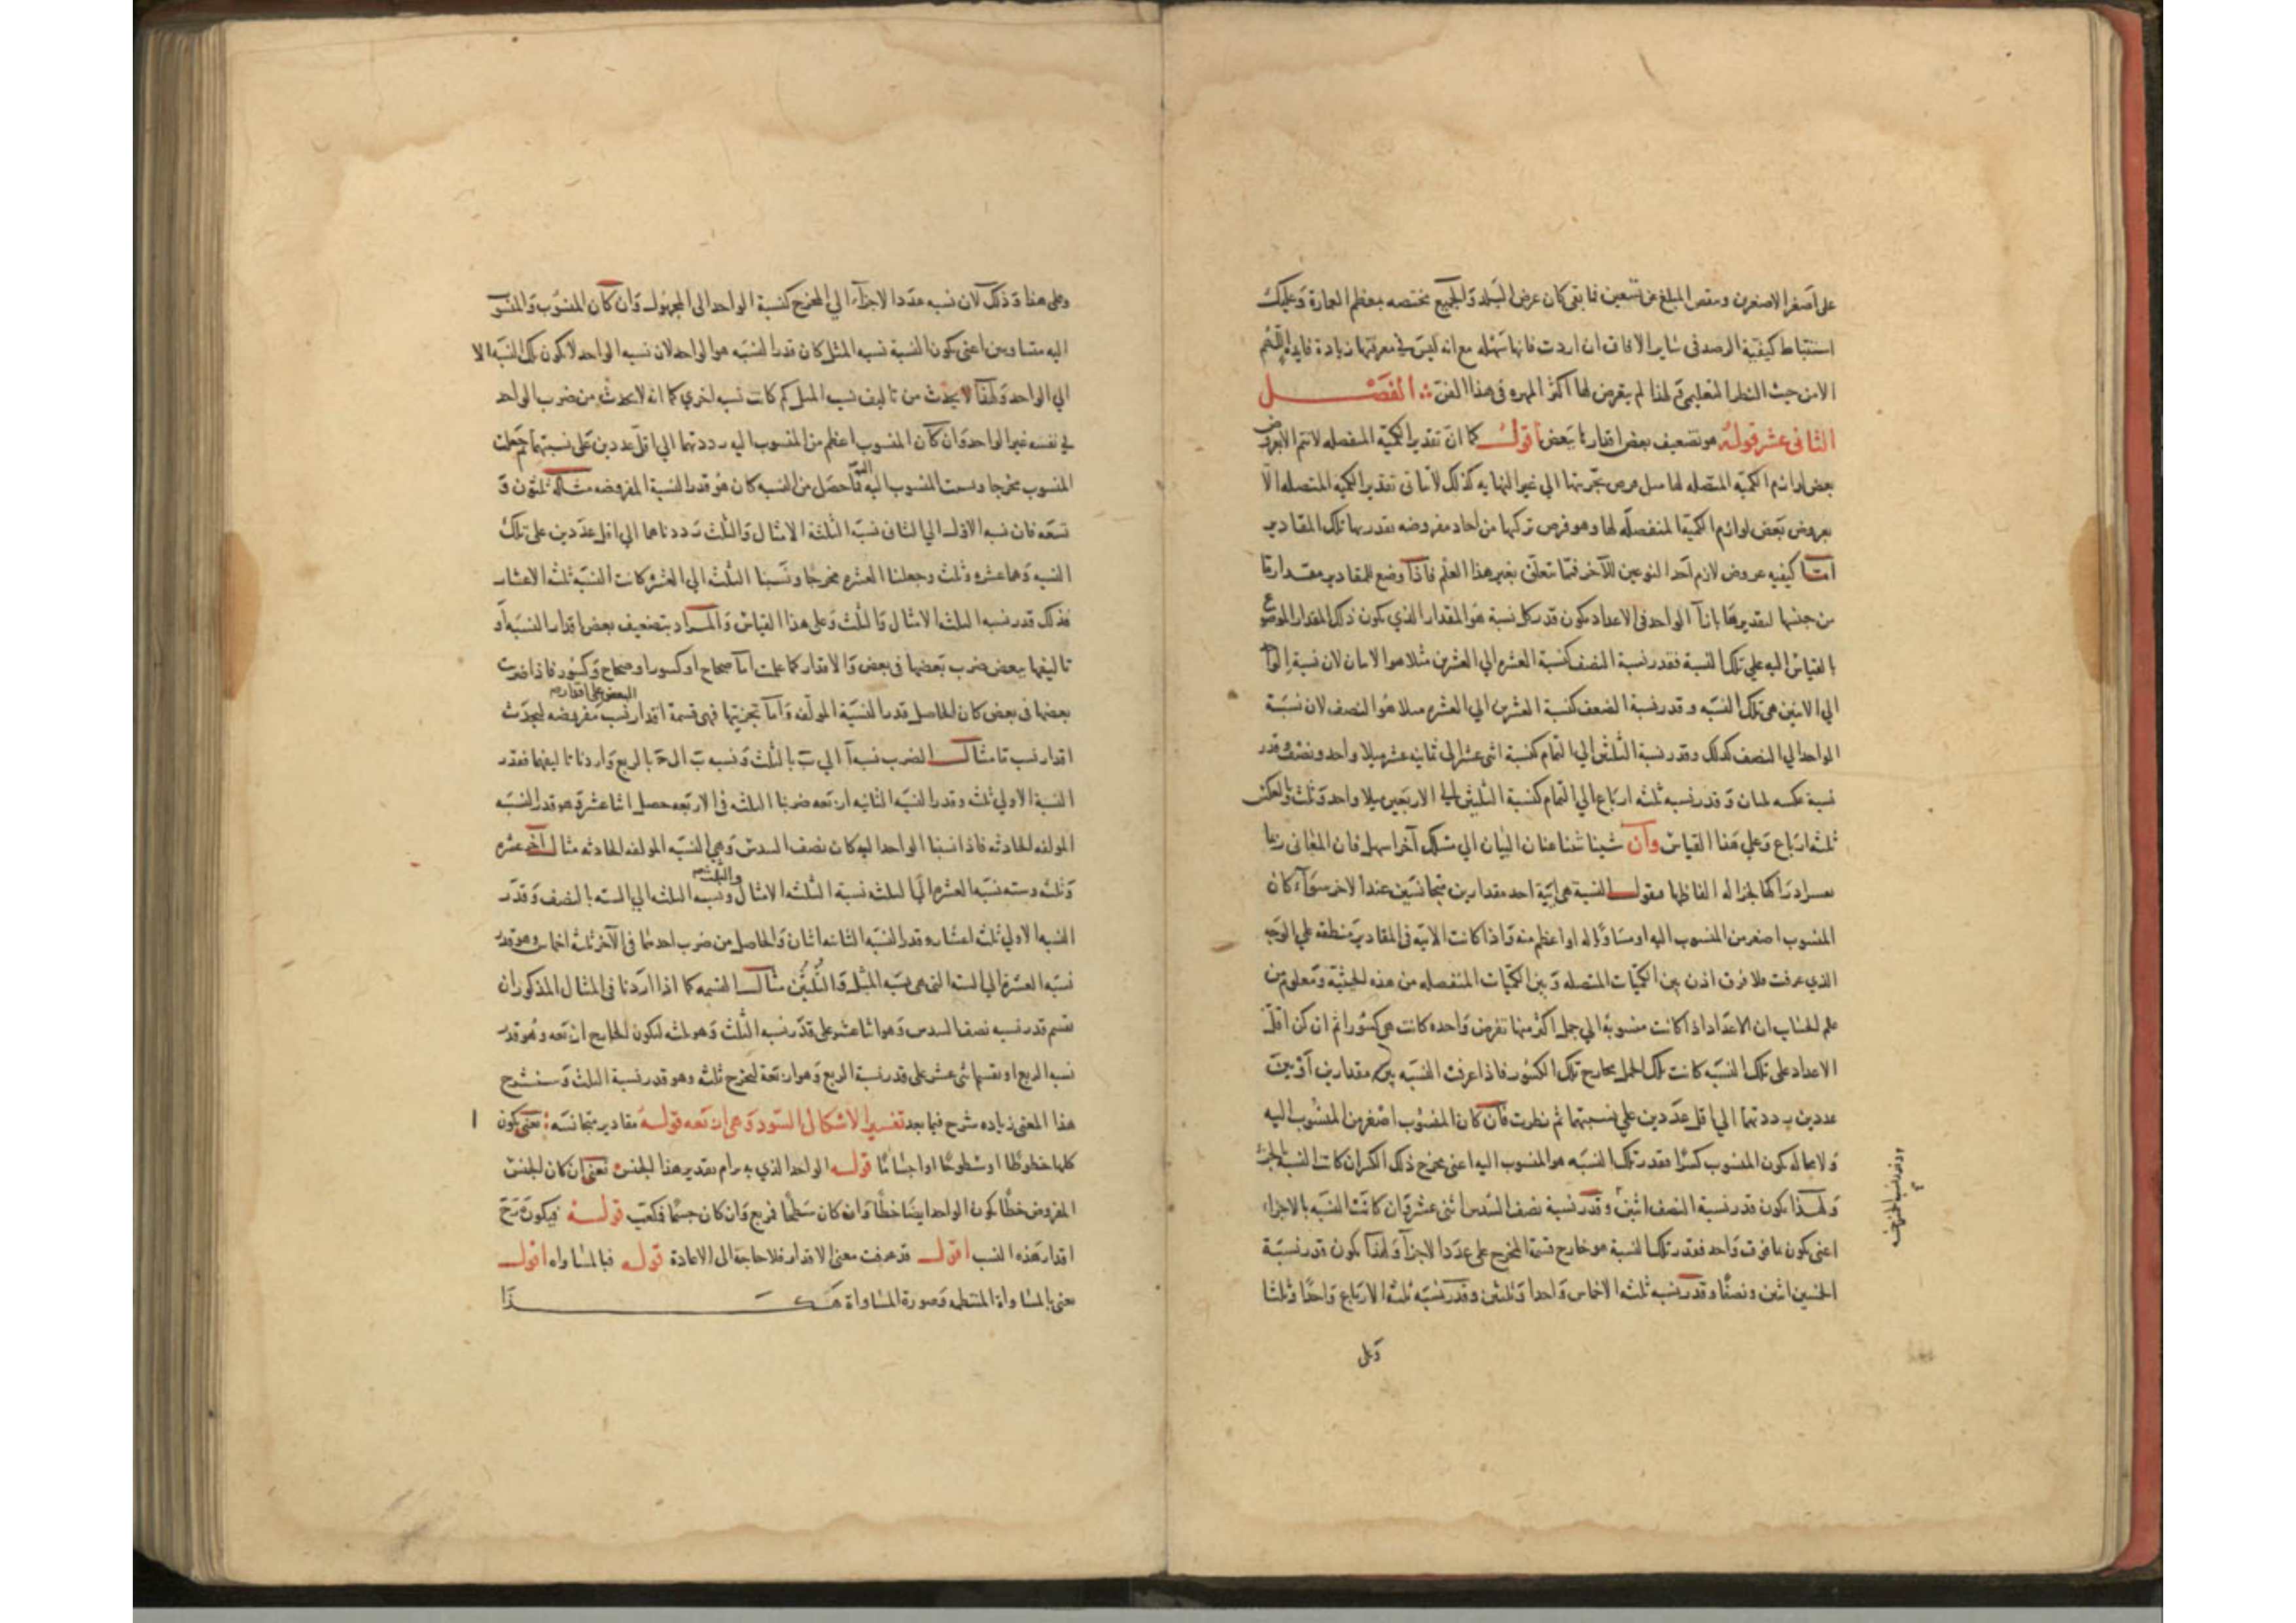 على أصغر الاصغرين وينقص المبلغ من تسعين فما بقى كان عرض البلد والجميع مختصه بمعظم العمارة وعليك
استنباط كيفية الرصد فى ساير الافاق ان اردت فانها سهله مع انه ليس في معرفتها زيادة فايدة اللهم
الا من حيث النظر التعليمى ولهذا لم يتعرض لها اكثر المهره فى هذا الفن الفصـــل
الثانى عشر قوله هو تضعيف بعض اقدارها ببعض اقول كما ان تقدير الكمية المنفصله لا تتم الا بعروض
بعض لوازم الكمية المتصله لها مثل فرض تجزيتها الى غير النهايه كذلك لا يتأتى تقدير الكميه المتصله الا
بعروض بعض لوازم الكمية المنفصله لها وهو فرض تركبها من احاد مفروضه يقدر بها تلك المقادير
اما كيفيه عروض لازم احد النوعين للآخر فمما يتعلق بغير هذا العلم فاذا وضع للمقادير مقدار ما
من جنسها لتقديرها بازآ الواحد فى الاعداد يكون قدر كل نسبة هو المقدار الذي يكون ذلك المقدار الموضوع
بالقياس اليه على تلك النسبة فقدر نسبة النصف كنسبة العشره الي العشرين مثلا هو الاثنان لان نسبة الواحد
الي الاثنين هى تلك النسبه وقدر نسبة الضعف كنسبة العشرين الي العشره مثلا هو النصف لان نسبة
الواحد الي النصف كذلك وقدر نسبة الثلثين الي التمام كنسبة اثنى عشر الى ثمانيه عشر مثلا واحد ونصف وقدر
نسبة عكسه ثلثان وقدر نسبه ثلثه ارباع الي التمام كنسبة الثلثين الى الاربعين مثلا واحد وثلث وبالعكس
ثلثه ارباع وعلي هذا القياس وان شينا ثنينا عنان البيان الي مسلك آخر اسهل فان المعانى ربما
يعسر ادراكها لجزاله الفاظها فنقول النسبة هى ايّة احد مقدارين متجانسين عند الاخر سوآء كان
المنسوب اصغر من المنسوب اليه او مساويا له او اعظم منه واذا كانت الايّه فى المقادير منطقه علي الوجه
الذي عرفت فلا فرق اذن بين الكميّات المتصله وبين الكميات المنفصله من هذه الحيثيّة ومعلوم من
علم الحساب ان الاعداد اذا كانت منسوبة الي جمل اكثر منها تفرض واحده كانت هى كسورا ثم ان كن اقل
الاعداد على تلك النسبه كانت تلك الجمل مخارج تلك الكسور فاذا عرفت النسبه بين مقدارين او بين
عددين رددتهما الي اقل عددين علي نسبتهما ثم نظرت فان كان المنسوب اصغر من المنسوب اليه
ولا محاله يكون المنسوب كسرا فقدر تلك النسبه هو المنسوب اليه اعنى مخرج ذلك الكسر ان كانت النسبة بالجزء
ولهذا يكون قدر نسبة النصف اثنين وقدر نسبة نصف السدس اثنى عشر وان كانت النسبه بالاجزاء
اعنى يكون ما فوق واحد فقدر تلك النسبة هو خارج قسمة المخرج على عدد الاجزآ ولهذا يكون قدر نسبة
الخمسين اثنين ونصفا وقدر نسبه ثلثه الاخماس واحدا وثلثين وقدر نسبه ثلثه الارباع واحدا وثلثا
وعلى
وعلى هذا وذلك لان نسبه عدد الاجزآء الي المخرج كنسبة الواحد الى المجهول وان كان المنسوب والمنسوب
اليه متساويين اعنى يكون النسبة نسبه المثل كان قدر النسبه هو الواحد لان نسبه الواحد لا يكون تلك النسبه الا
الي الواحد ولهذا لا يحدث من تاليف نسب المثل كم كانت نسب اخري كما انه لا يحدث من ضرب الواحد
في نفسه غير الواحد وان كان المنسوب اعظم من المنسوب اليه رددتهما الي اقل عددين على نسبتهما ثم جعلت
المنسوب مخرجا ونسبت المنسوب اليه اليه فما حصل من النسبه كان هو قدر النسبة المفروضه مثاله ثلثون و
تسعه فان نسبه الاول الي الثانى نسبة الثلثة الامثال والثلث رددناهما الي اقل عددين على تلك
النسبه وهما عشره وثلث وجعلنا العشره مخرجا ونسبنا الثلث الي العشره كانت النسبه ثلثه الاعشار
فذلك قدر نسبه الثلثه الامثال والثلث وعلى هذا القياس والمراد بتضعيف بعض اقدار النسبه او
تاليفها ببعض ضرب بعضها فى بعض والاقدار كما علمت اما صحاح او كسور او صحاح وكسور فاذا ضربت
بعضها فى بعض كان الحاصل قدر النسبة المولفه واما تجزيتها فهى قسمة اقدار نسب مفروضه ليحدث
البعض على اقدار
اقدار نسب ما مثال الضرب نسبة آ الي ب بالثلث ونسبه ب الى ح بالربع واردنا تاليفهما فقدر
النسبة الاولي ثلثه وقدر النسبه الثانيه اربعه ضربنا الثلثه فى الاربعه حصل اثنا عشر وهو قدر النسبه
المولفه الحادثه فاذا نسبنا الواحد اليه كان نصف السدس وهى النسبه المولفه الحادثه مثال آخر عشره
وثلثه وسته نسبه العشره الى الثلثه نسبة الثلثه الامثال والثلث ونسبه الثلثه الي الستة بالنصف وقدر
النسبه الاولي ثلثه اعشار وقدر النسبه الثانيه اثنان والحاصل من ضرب احدهما فى الآخر ثلثه اخماس وهو قدر
نسبه العشرة الي الستة التى هى نسبه المثل والثلثين مثال القسمه كما اذا اردنا فى المثال المذكور ان
نقسم قدر نسبه نصف السدس وهو اثنا عشر على قدر نسبه الثلث وهو ثلثه ليكون الخارج اربعه وهو قدر
نسبة الربع او نقسم اثنى عشر على قدر نسبة الربع وهو اربعة ليخرج ثلثه وهو قدر نسبة الثلث وسنشرح
هذا المعنى زياده شرح فيما بعد تفسير الاشكال السود وهى اربعه قوله مقادير متجانسه يعنى يكون
كلها خطوطا او سطوحا او اجساما قوله الواحد الذي به يرام تقدير هذا الجنس يعنى ان كان الجنس
المفروض خطا يكون الواحد ايضا خطا وان كان سطحا فمربع وان كان جسما فمكعب قوله فيكون
اقدار هذه النسب اقول قد عرفت معنى الاقدار فلا حاجة الى الاعادة قوله فبالمساواه اقول
يعنى بالمساواة المنتظمه وصورة المساواة هكـــــذا